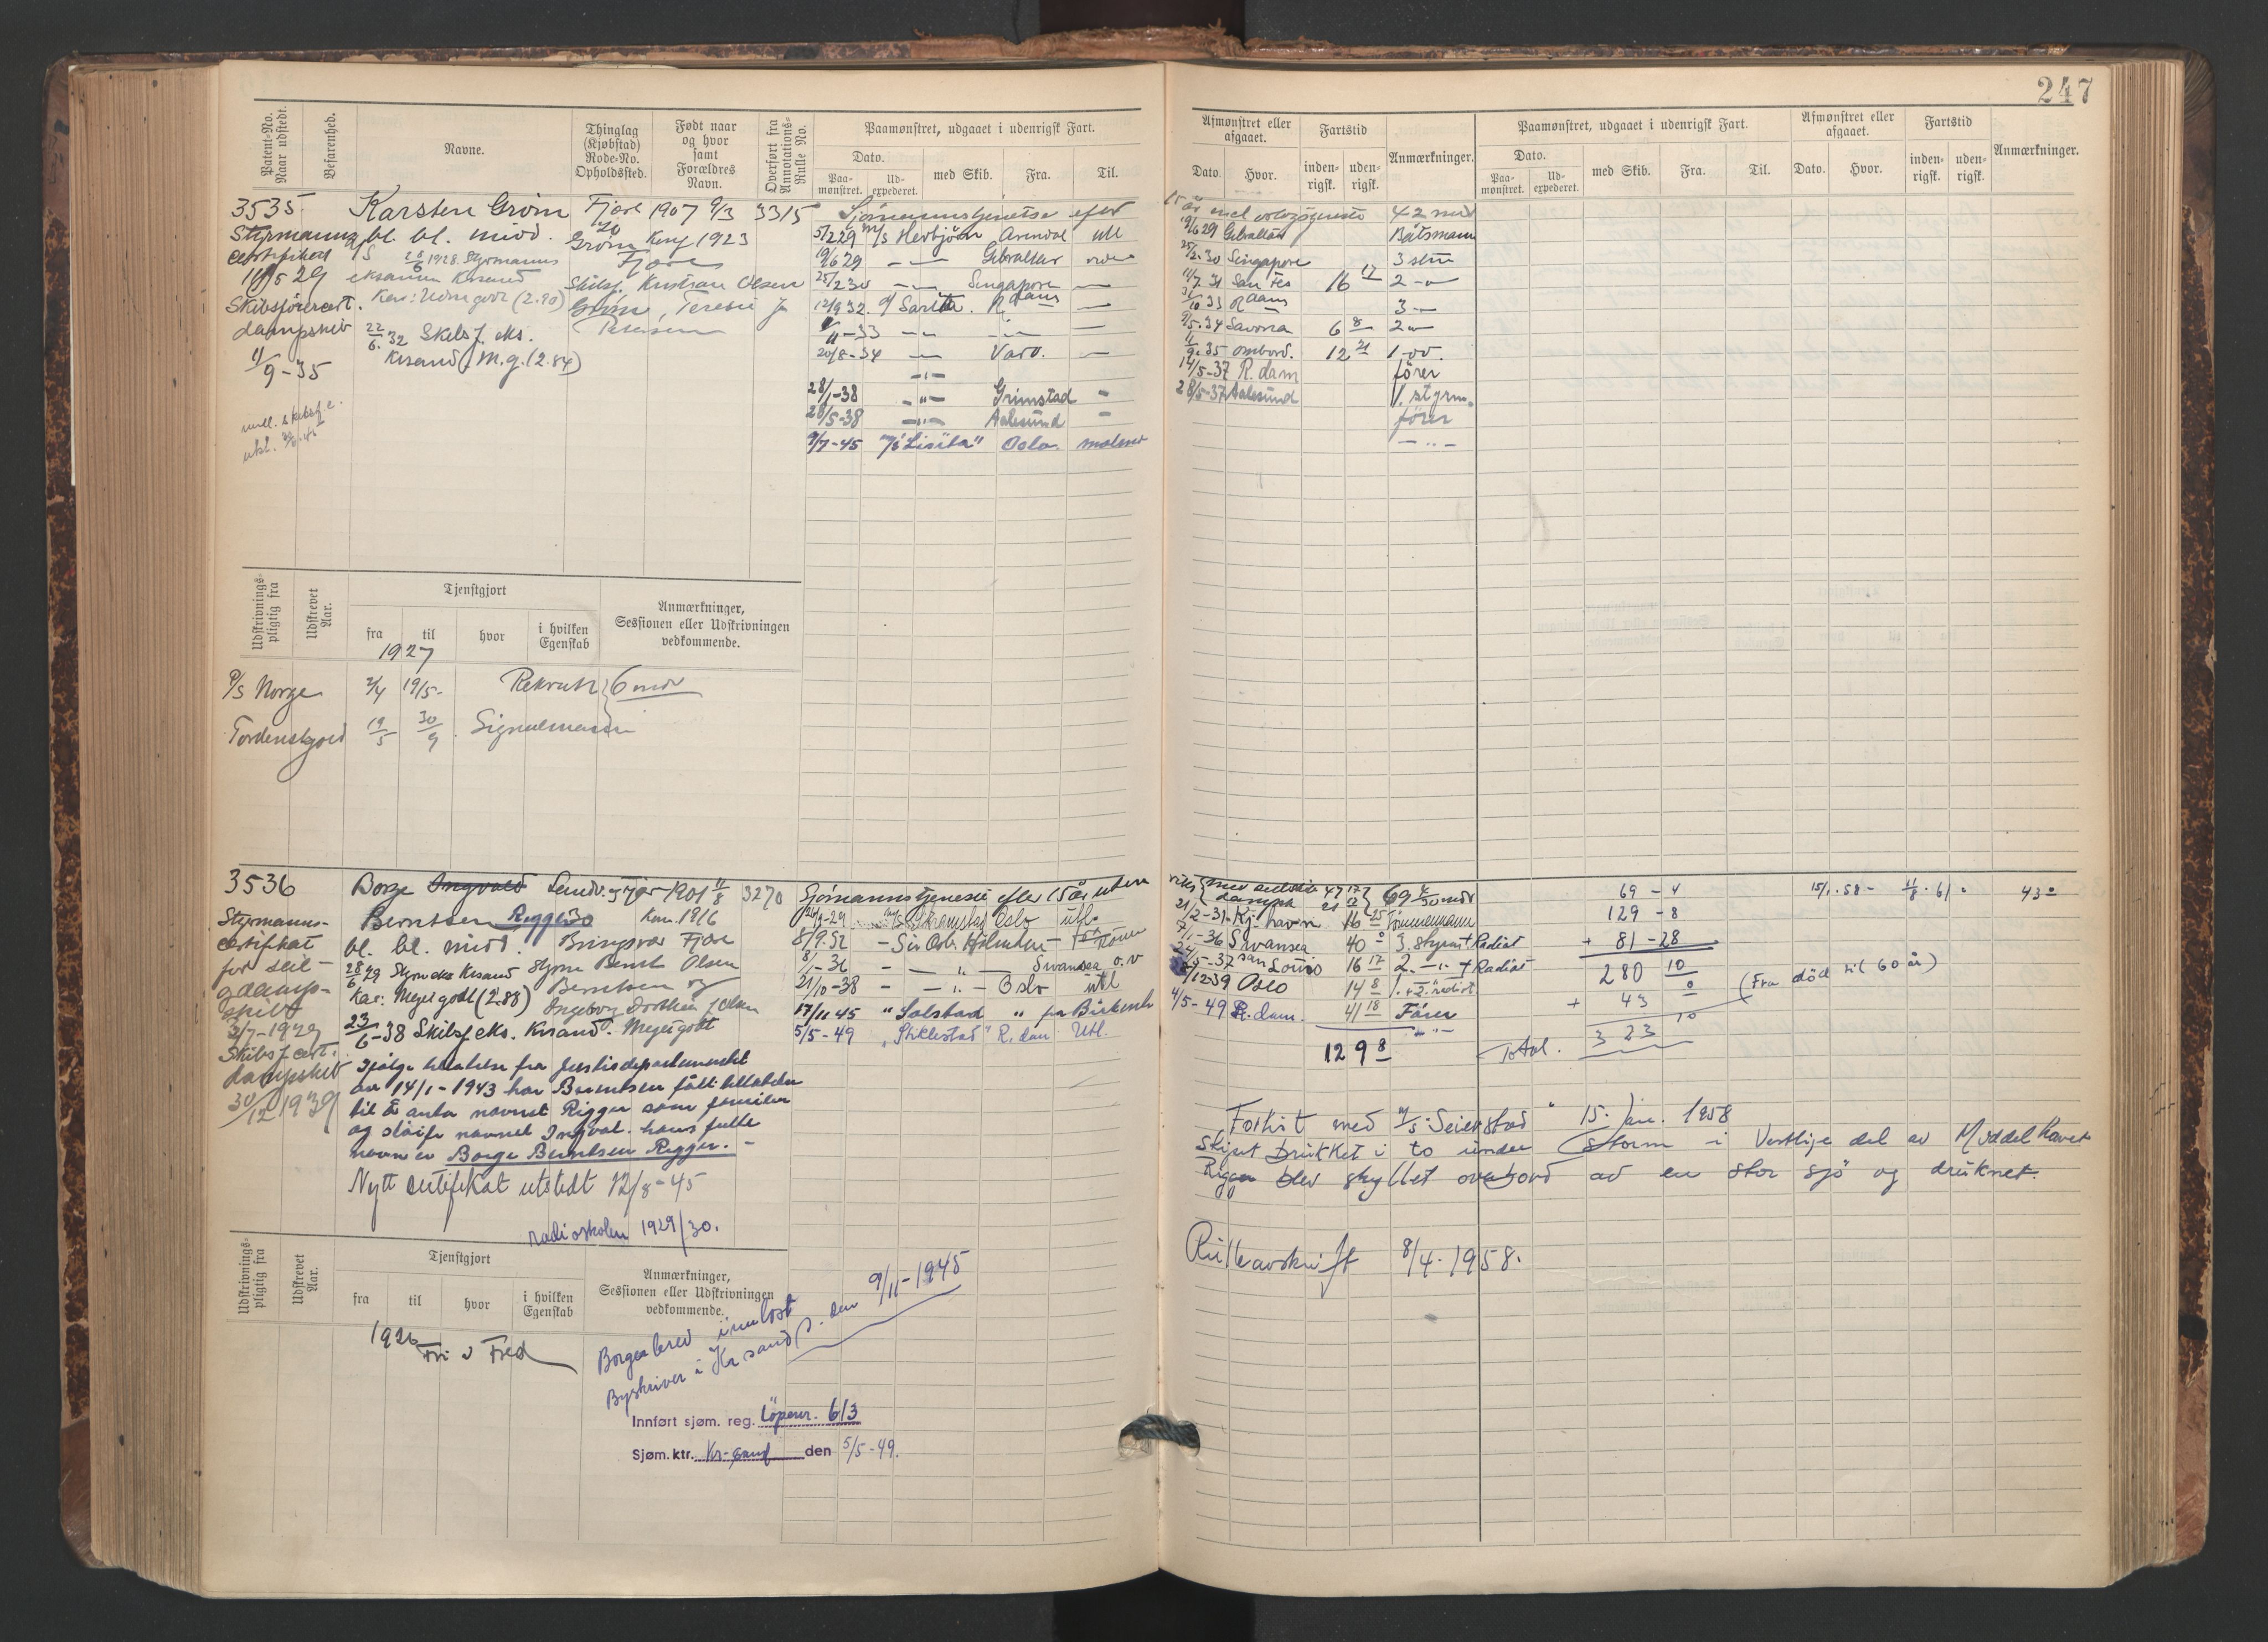 247
Patent-No. Naar udstedt.
Befarenhed.
Navne.
Thinglag (Kjøbstad) Rode-No. Opholdssted.
Født naar og hvor samt Forældres Navn.
Overført fra Annotations-Rulle No.
Paamønstret, udgaaet i udenrigsk Fart.
Dato.
Paa-mønstret.
Ud-expederet.
med Skib.
Fra.
Til.
3535 Karsten Grøm Fjære 1907 9/3 3315
Styrmanns bl. bl. midd. Grøm Konf 1923
certifikat 1928 Styrmanns Fjære
11/5 29 eksamen Krsand Skibsf. Kristian Olsen
Skibsførercert. Kar: Udm godt (2.90) Grøm, Terese f.
dampskib 22/6 32 Skibsf. eks. Petersen
11/9-35 Krsand M.g. (2.84)
Sjømannstjeneste efter
5/2 29 m/s Herbjörn Arendal utl
19/6 29 Gibraltar
25/2 30 Singapore
12/9 32 Sarita R dam
11-33
20/8-34 Vard.
28/1-38 Grimstad
28/5-38 Aalesund
9/7-45 m/s "Lisita" Oslo. malmø
Udskrivnings-pligtig fra
Udskrevet Aar.
Tjenstgjort
fra
til
hvor
i hvilken Egenskab
Anmærkninger, Sessionen eller Udskrivningen vedkommende.
1927
P/s Norge 2/4 19/5- Rekrutt 6 mdr
Tordenskjold 19/5 30/9 Signalmann
3536 Borge Ingvald Lundv. Fjær 1901 11/8 3270
Styrmanns- Berntsen Rigger Kon. 1916
certifikat bl. bl. midd. Bringsvær Fjære
for seil- 28/6 29 Styrm eks Krsand Styrm Bernt Olsen
og damp- Kar: Meget godt (2.88) Berntsen og
skib Ingeborg Dorthea f. Olsen
2/7-1929 23/6-38 Skibsf eks. Krsand. Meget godt
Skibsf cert. Ifølge tillatelse fra Justisdepartementet
dampskib av 14/1-1943 har Berntsen fått tillatelse
30/12 1939 til å anta navnet Rigger som familien
og sløife navnet Ingval. hans fulle
navn er Borge Berntsen Rigger.
Nytt certifikat utstedt 12/8-45
radioskolen 1929/30.
Sjømannstjeneste efter 15 år uten
Oslo utl.
8/9-32 - Sir Osb. Holmden -
8/1-36 - " - Swansea o.v
21/10-38 - " - Oslo utl
17/11 45 "Solstad " fra Birkenh
5/5-49 "Stiklestad" R. dam Utl.
Udskrivnings-pligtig fra
Udskrevet Aar.
Tjenstgjort
fra
til
hvor
i hvilken Egenskab
Anmærkninger, Sessionen eller Udskrivningen vedkommende.
1926 Fri i Fred
Borgerbrev innløst
Byskriver i Kr sand S. den 9/11-1945
Innført sjøm. reg. Löpenr. 613
Sjøm. ktr. Kr-sand den 5/5-49.
Afmønstret eller afgaaet.
Dato.
Hvor.
Fartstid
inden-rigsk.
uden-rigsk.
Anmærkninger.
Paamønstret, udgaaet i udenrigsk Fart.
Dato.
Paa-mønstret.
Ud-expederet.
med Skib.
Fra.
Til.
Afmønstret eller afgaaet.
Dato.
Hvor.
Fartstid
inden-rigsk.
uden-rigsk.
Anmærkninger.
15 år 42 mdr
19/6 29 Gibraltar Båtsmann
25/2-30 Singapore 3 stm
11/7 31 San Fes 16 17 2
10 33 R dam 3
9/5-34 Savona 6 8 2
11/9-35 ombord. 12 21 1
14/5-37 R. dam förer
28/5-37 Aalesund 1. styrm.
förer
69 mdr
21/2-31 Kj. havn 16 25 Tömmermann
7/1-36 Swansea 40 0 3. styrm + Radiot
24/5-37 san Louis 16 17 2. - " - + Radiot
12 39 Oslo 14 8
4/5-49 R. dam. 41 18 Förer
129 8
69 - 4
129 - 8
+ 81 - 28
280 10
+ 43 0
Total. 323 10
15/1-58 - 11/8-61 = 43 0
(Fra död til 60 år)
Forlist med m/s "Seierstad" 15. jan. 1958
Skipet brukket i to under storm i Vestlige del av Middelhavet
Rigger blev skyllet overbord av en stor sjö og druknet.
Rulleavskrift 8/4.1958.